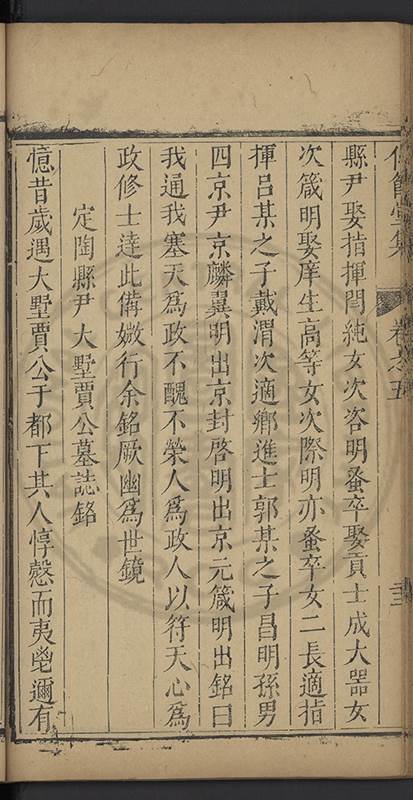 縣尹娶指揮閆純女次咨明蚤卒娶貢士成大器女
次箴明娶庠生高等女次際明亦蚤卒女二長適指
揮呂某之子戴渭次適鄉進士郭某之子昌明孫男
四京尹京麟翼明出京封啓明出京元箴明出銘曰
我通我塞天爲政不醜不榮人爲政人以符天心爲
政修士達此備媺行余銘厥幽爲世鏡
定陶縣尹大墅賈公墓誌銘
憶昔歲遇大墅賈公于都下其人惇慤而夷鬯邇有
堂集 卷之五